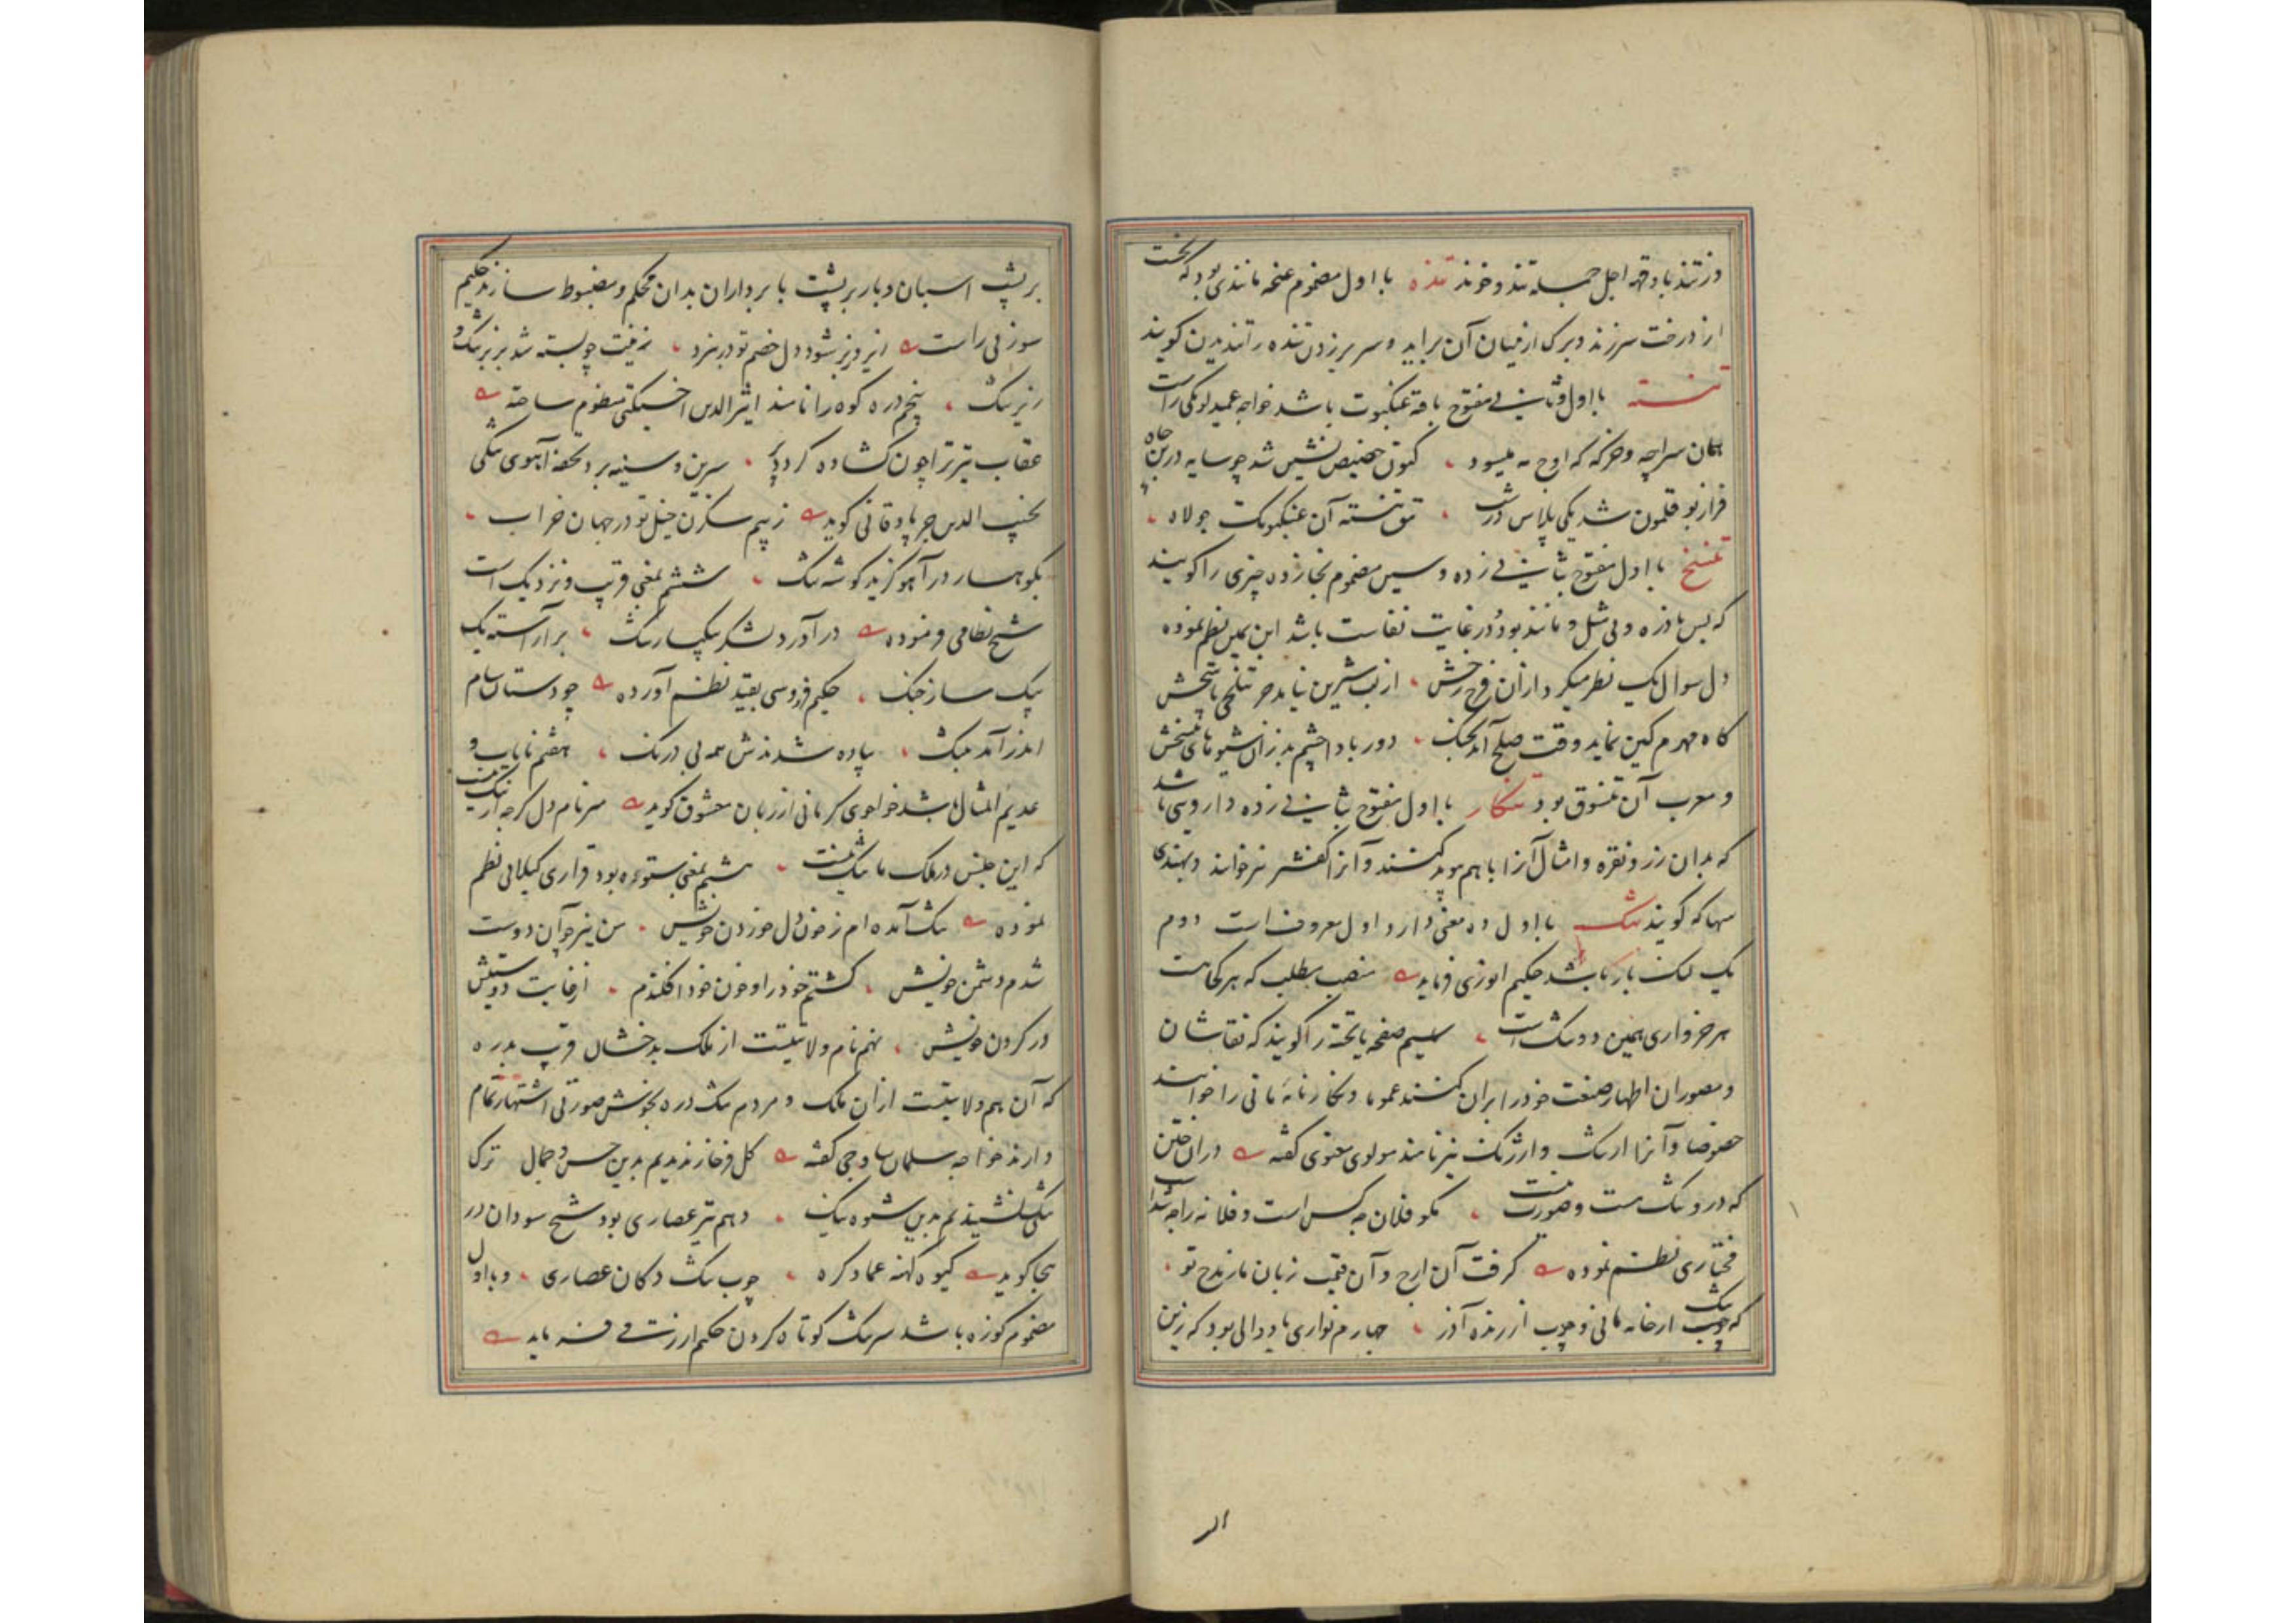 وزنتند باد وقهر اجل جمله تند و خوند تنده با اول مضموم غنچه مانندی بود که نخست
از درخت سر زند و برک از میان آن براید و سر بر زدن تنده را تندیدن کویند
تنسته با اول و ثانی مفتوح بافته عنکبوت باشد خواجه عمید لومکی راست
همان سراچه و خرکه که اوج مه میسود کنون حضیض نشین شد چو سایه در بن چاه
فراز بو قلمون شد یکی پلاس درشت تتق تنسته آن عنکبوتک جولاه
تنسخ با اول مفتوح بثانی زده و سین مضموم بخا زده چیزی را کویند
که بس نادره و بی مثل و مانند بود و در غایت نفاست باشد ابن یمین نظم نموده
دل سوال یک نظر میکرد ازان فرخ رخش از لب شیرین نیامد جز بتلخی پاسخش
کاه مهرم کین نماید وقت صلح آید بجنک دور بادا چشم بد زان شیوهای تنسخش
و معرب آن تنسوق بود تنکار با اول مفتوح بثانی زده داروئی باشد
که بدان زر و نقره و امثال آنرا باهم پیوند کنند و آنرا کفشیر نیز خوانند و بهندی
سهاکه کویند تنک با اول ده معنی دارد اول معروف است دوم
یک لنک بار باشد حکیم انوری فرماید منصب مطلب که هر کجا هست
هر خرواری همین دو تنک است سیم صفحه یا تخته را کویند که نقاشان
و مصوران اظهار صنعت خود را بران کنند عموما و نکارنامه مانی را خوانند
خصوصا و آنرا ارتنک و ارژنک نیز نامند مولوی معنوی کفته دران ختن
که درو تنک هست و صورت نیست مکو فلان چه کس است و فلانه را چه شد است
مختاری نظم نموده کرفت آن ارج و آن قیمت زبان ما ز مدح تو
که چوب تنک از خانه مانی و چوب از رنده آذر چهارم نواری یا دوالی بود که زین
بر پشت اسبان و بار بر پشت بار برداران بدان محکم و مضبوط سازند حکیم
سوزنی راست از بر و زیر شود دل خصم تو در نبرد زینت چو بسته شد بزبر تنک و
زیر تنک پنجم دره کوه را نامند اثیرالدین اخسیکتی منظوم ساخته
عقاب تیر ترا چون کشاده کردد پر سرین و سینه برد تحفه آهوی تنکی
نجیب الدین جرپادقانی کوید ز بیم سکزن خیل تو در جهان خراب
بکوهسار در آهو کزید کوشه تنک ششم بمعنی قریب و نزدیک است
شیخ نظامی فرموده در آورد لشکر بیکبار تنک بر آراسته یک
بیک ساز جنک حکیم فردوسی بقید نظم آورده چو دستان سام
اندر آمد بتنک پیاده شدندش همه بی درنک هفتم نایاب و
عدیم المثال باشد خواجوی کرمانی از زبان معشوق کوید مبر نام دل کرچه از تنک نیست
که این جنس در ملک ما تنک نیست هشتم بمعنی بستوه بود قراری کیلانی نظم
نموده تنک آمده ام ز خون دل خوردن خویش من نیز چو آن دوست
شدم دشمن خویش کشتم خود را و خون خود افکندم از غایت دوستیش
در کردن خویش نهم نام ولایتیست از ملک بدخشان قریب بدره
که آن هم ولایتیست ازان ملک و مردم تنک و دره بخوش صورتی اشتهار تمام
دارند خواجه سلمان ساوجی کفته کل فرخار ندیدم بدین حسن و جمال ترک
تنکی نشنیدم بدین شیوه تنک دهم تیر عصاری بود شیخ سودان در
هجا کوید کیوه کهنه عماد کره چوب تنک دکان عصاری و با اول
مضموم کوزه باشد سر تنک کوتاه کردن حکیم ارزقی فرماید
الر